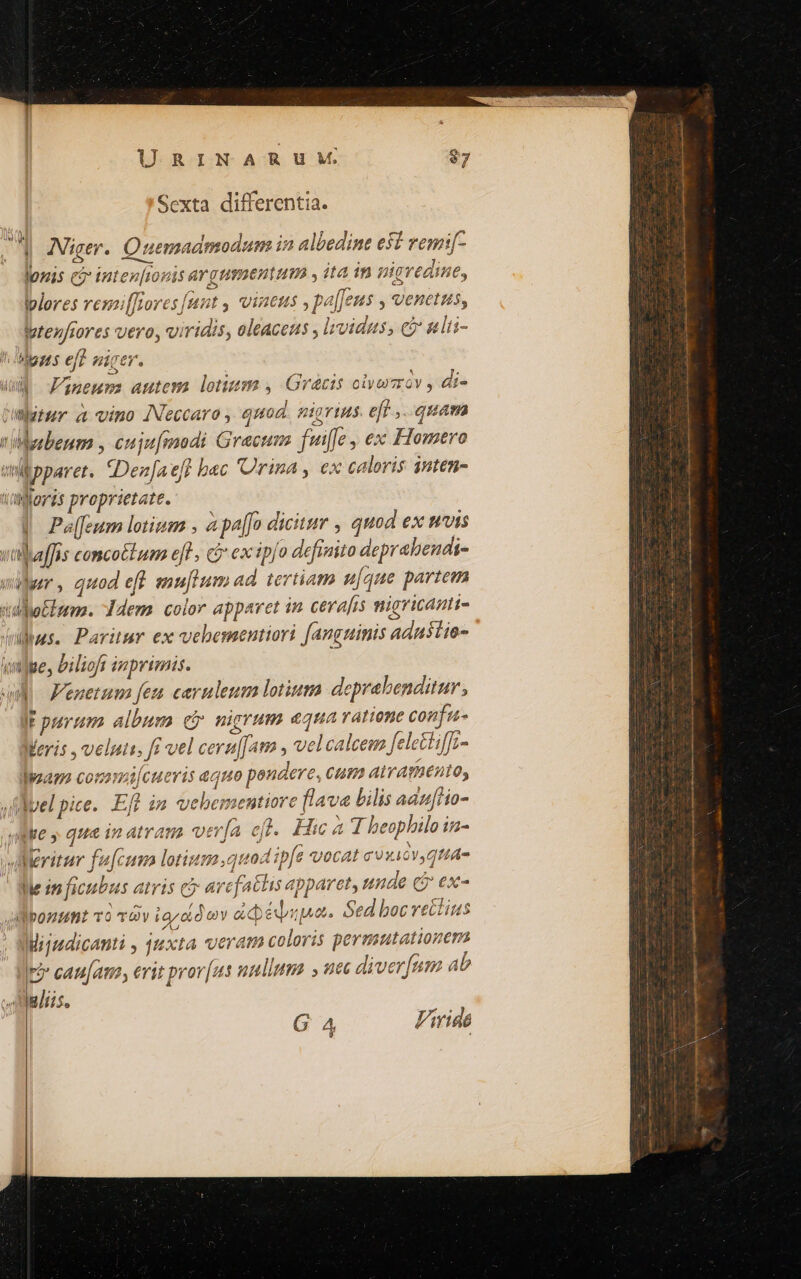 URINARUM. 87
Sexta differentia.
Niger. Quemadmodum in albedine est remis-
ionis & intensionis argumentum, ita in nigredine,
olores remissiores sunt, vineus, passeus, venetus,
ntensiores vero, viridis, oleaceus, lividus, & ulti-
mus est niger.
Vineum autem lotium, Græcis οἰνωπὸν, di-
itur a vino Neccaro, quod nigrius est, quam
rubeum, cujusmodi Græcum fuisse, ex Homero
apparet. Densa est hæc Urina, ex caloris inten-
ioris proprietate.
Passeum lotium, a passo dicitur, quod ex uvis
assis concoctum est, & ex ipso definito deprahendi-
ur, quod est mustum ad tertiam usque partem
octum. Idem color apparet in cerasis nigricanti-
us. Paritur ex vehementiori sanguinis adustio-
ne, biliosi inprimis.
Venetum seu cæruleum lotium deprahenditur,
purum album & nigrum æqua ratione confu-
eris, veluti, si vel cerussam, vel calcem selectissi-
mam commiscueris æquo pondere, cum atramento,
vel pice. Est in vehementiore flavæ bilis adustio-
ne, quæ in atram versa est. Hic à Theophilo in-
eritur fuscum lotium, quod ipse vocat συκιόν, qua-
le in ficubus atris & arefactis apparet, unde & ex-
ponunt τὸ τῶν ἰσχάδων ἀφέψημα. Sed hoc rectius
dijudicanti, juxta veram coloris permutationem
& causam, erit prorsus nullum, nec diversum ab
aliis.
G 4 Viride